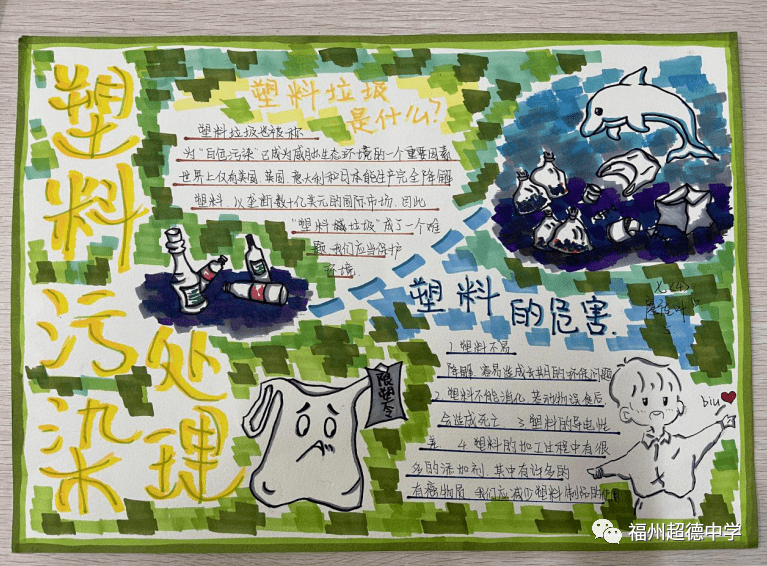 塑料
污染
处理
塑料垃圾
是什么?
塑料垃圾也被称
为"白色污染"已成为威胁生态环境的一个重要因素
世界上仅有美国.英国.意大利和日本能生产完全降解
塑料.以垄断数十亿美元的国际市场.因此
"塑料垃圾"成了一个难
题.我们应当保护
环境.
塑料的危害.
1.塑料不易
降解 容易造成长期的环保问题
2.塑料不能消化 某动物误食后
会造成死亡 3.塑料的导电性
差 4.塑料的加工过程中有很
多的添加剂.其中有许多的
有毒物质 我们应减少塑料制品的使用
限塑令
biu
福州超德中学